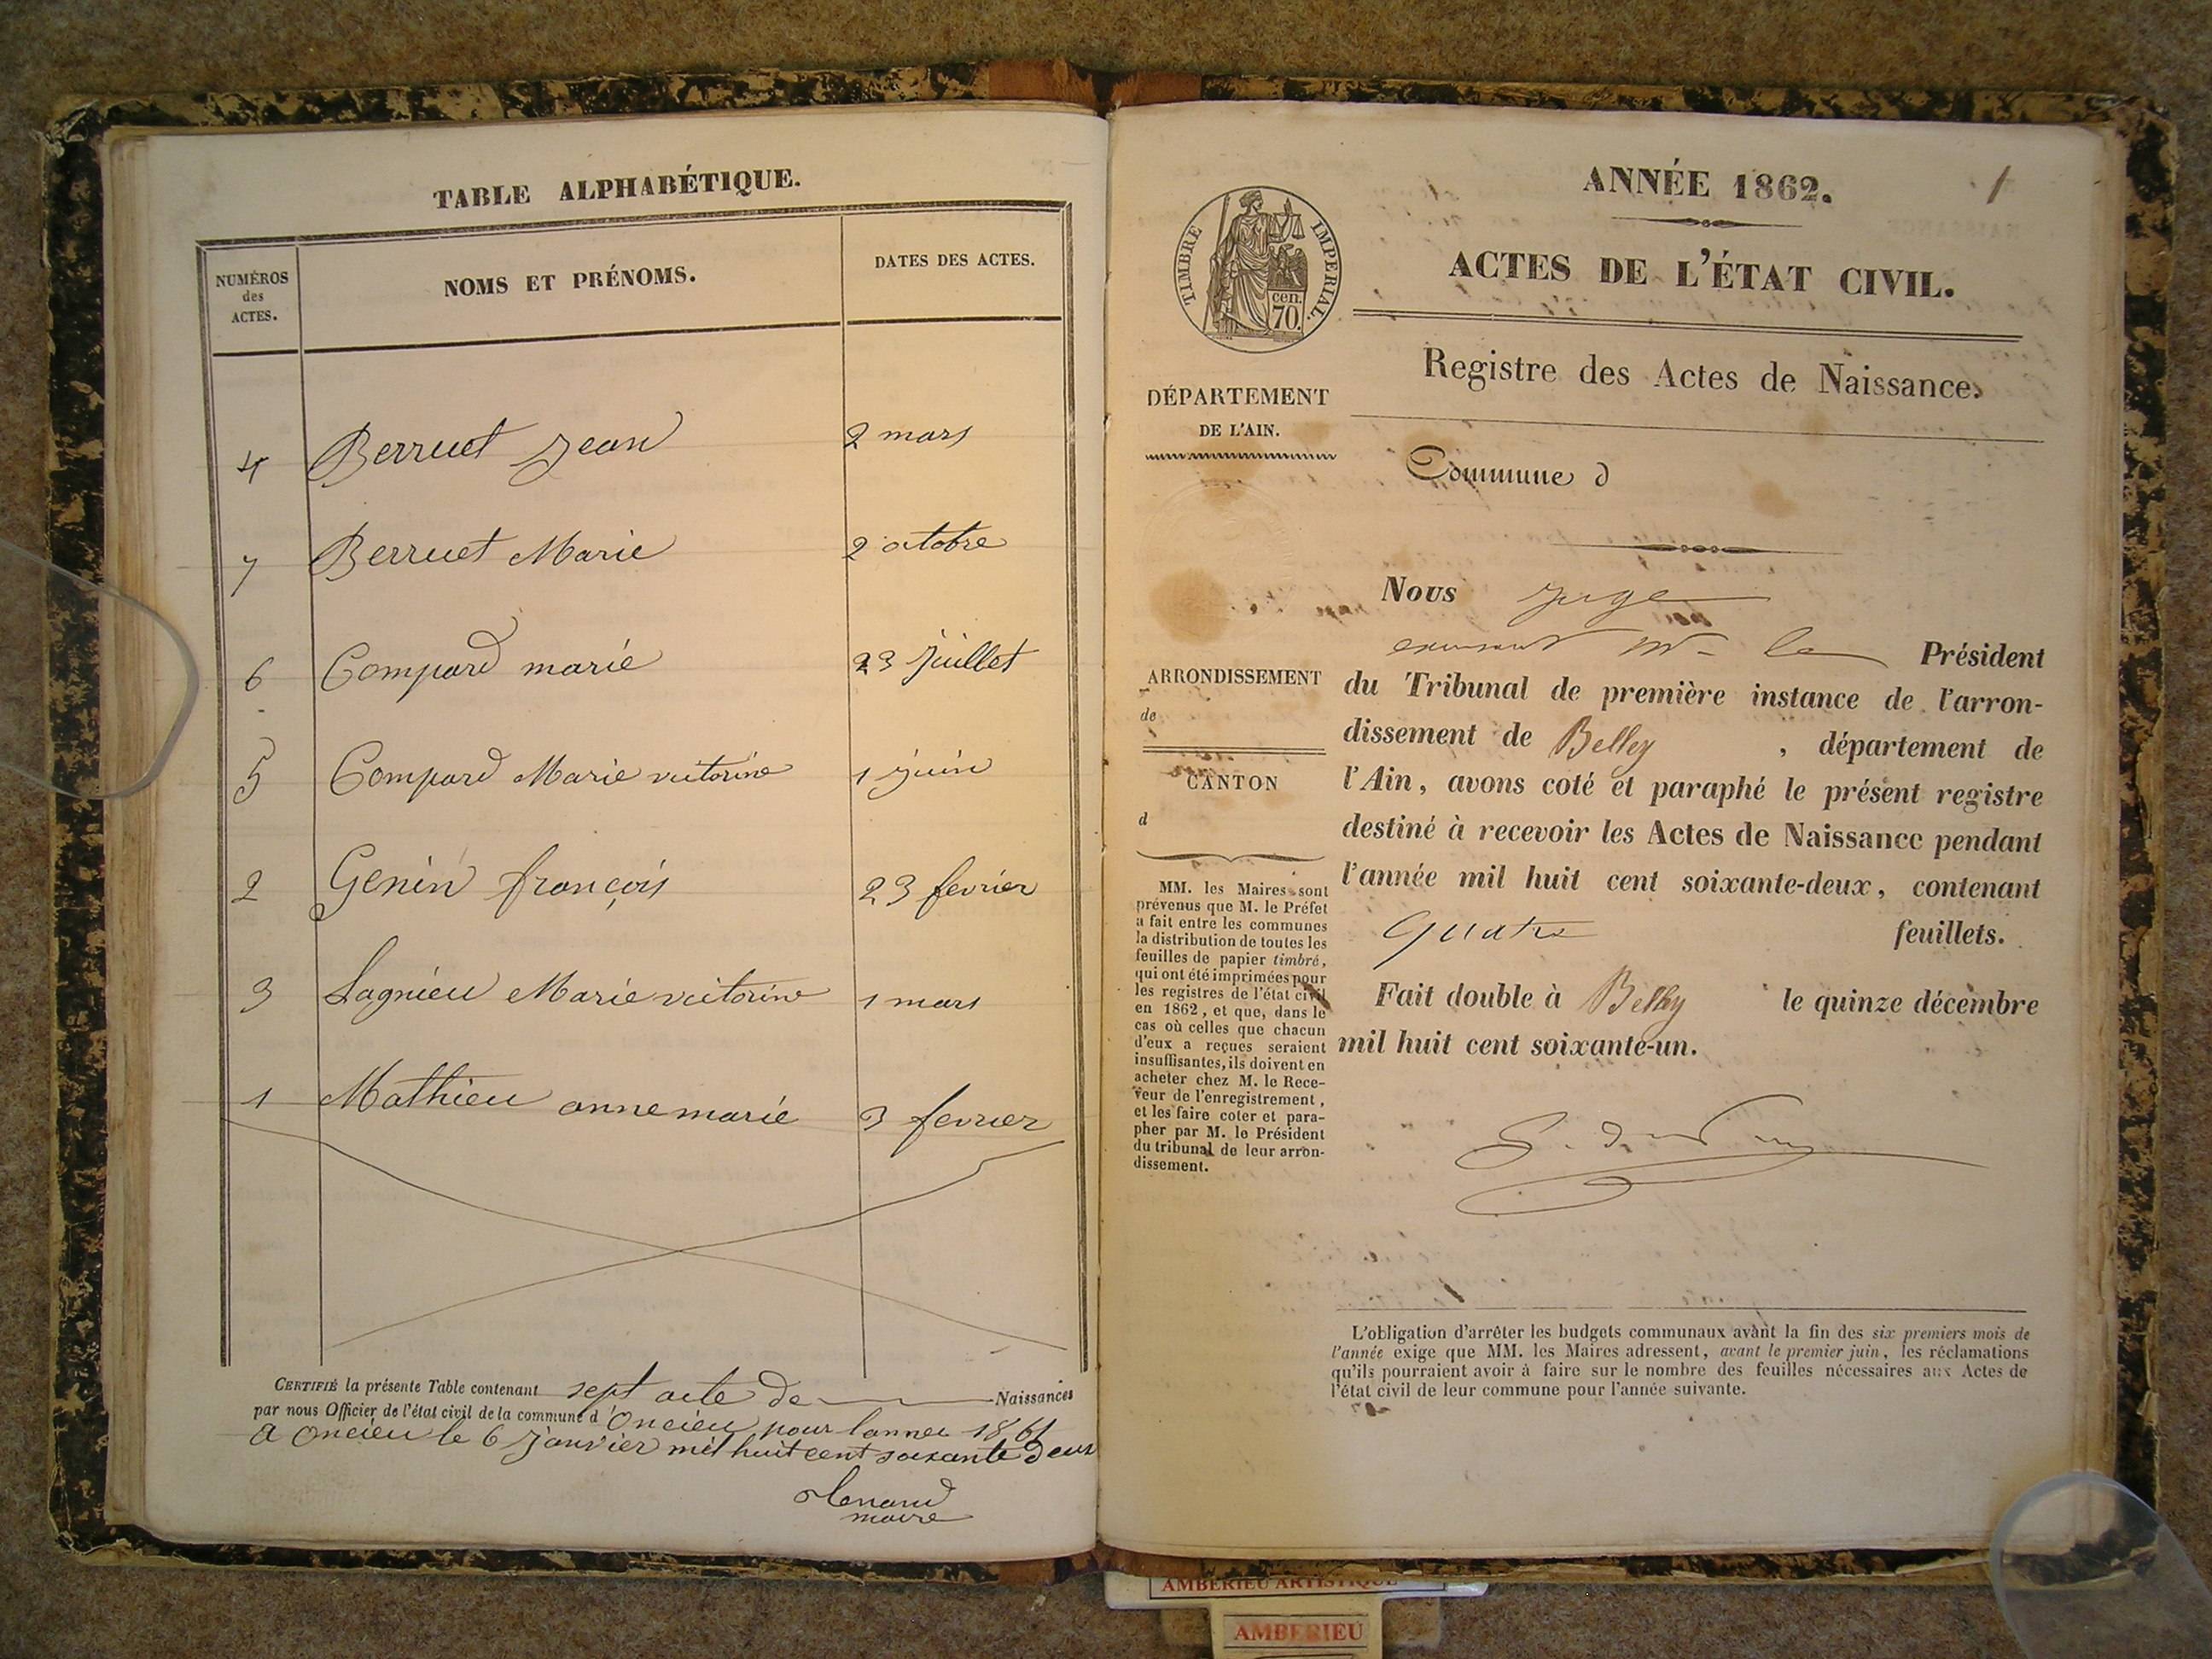 TABLE ALPHABÉTIQUE.
NUMÉROS
des
ACTES.
NOMS ET PRÉNOMS.
DATES DES ACTES.
4 Berruet Jean 2 mars
7 Berruet Marie 2 octobre
6 Compard marie 23 Juillet
5 Compard Marie victorine 1 juin
2 Genin françois 23 fevrier
3 Lagnieu Marie victorine 1 mars
1 Mathieu anne marie 3 fevrier
CERTIFIÉ la présente Table contenant sept acte de Naissances
par nous Officier de l'état civil de la commune d'Oncieu pour lannee 1861
a oncieu le 6 janvier mil huit cent soixante deux
maire
1
ANNÉE 1862.
ACTES DE L'ÉTAT CIVIL.
TIMBRE IMPERIAL.
cen.
70.
Registre des Actes de Naissance.
DÉPARTEMENT
DE L'AIN.
Commune d
ARRONDISSEMENT
de
CANTON
d
MM. les Maires sont
prévenus que M. le Préfet
a fait entre les communes
la distribution de toutes les
feuilles de papier timbré,
qui ont été imprimées pour
les registres de l'état civil
en 1862, et que, dans le
cas où celles que chacun
d'eux a reçues seraient
insuffisantes, ils doivent en
acheter chez M. le Rece-
veur de l'enregistrement,
et les faire coter et para-
pher par M. le Président
du tribunal de leur arron-
dissement.
Nous juge
Mr le Président
du Tribunal de première instance de l'arron-
dissement de Belley, département de
l'Ain, avons coté et paraphé le présent registre
destiné à recevoir les Actes de Naissance pendant
l'année mil huit cent soixante-deux, contenant
quatre feuillets.
Fait double à Belley le quinze décembre
mil huit cent soixante-un.
L'obligation d'arrêter les budgets communaux avant la fin des six premiers mois de
l'année exige que MM. les Maires adressent, avant le premier juin, les réclamations
qu'ils pourraient avoir à faire sur le nombre des feuilles nécessaires aux Actes de
l'état civil de leur commune pour l'année suivante.
AMBERIEU ARTISTIQUE
AMBERIEU